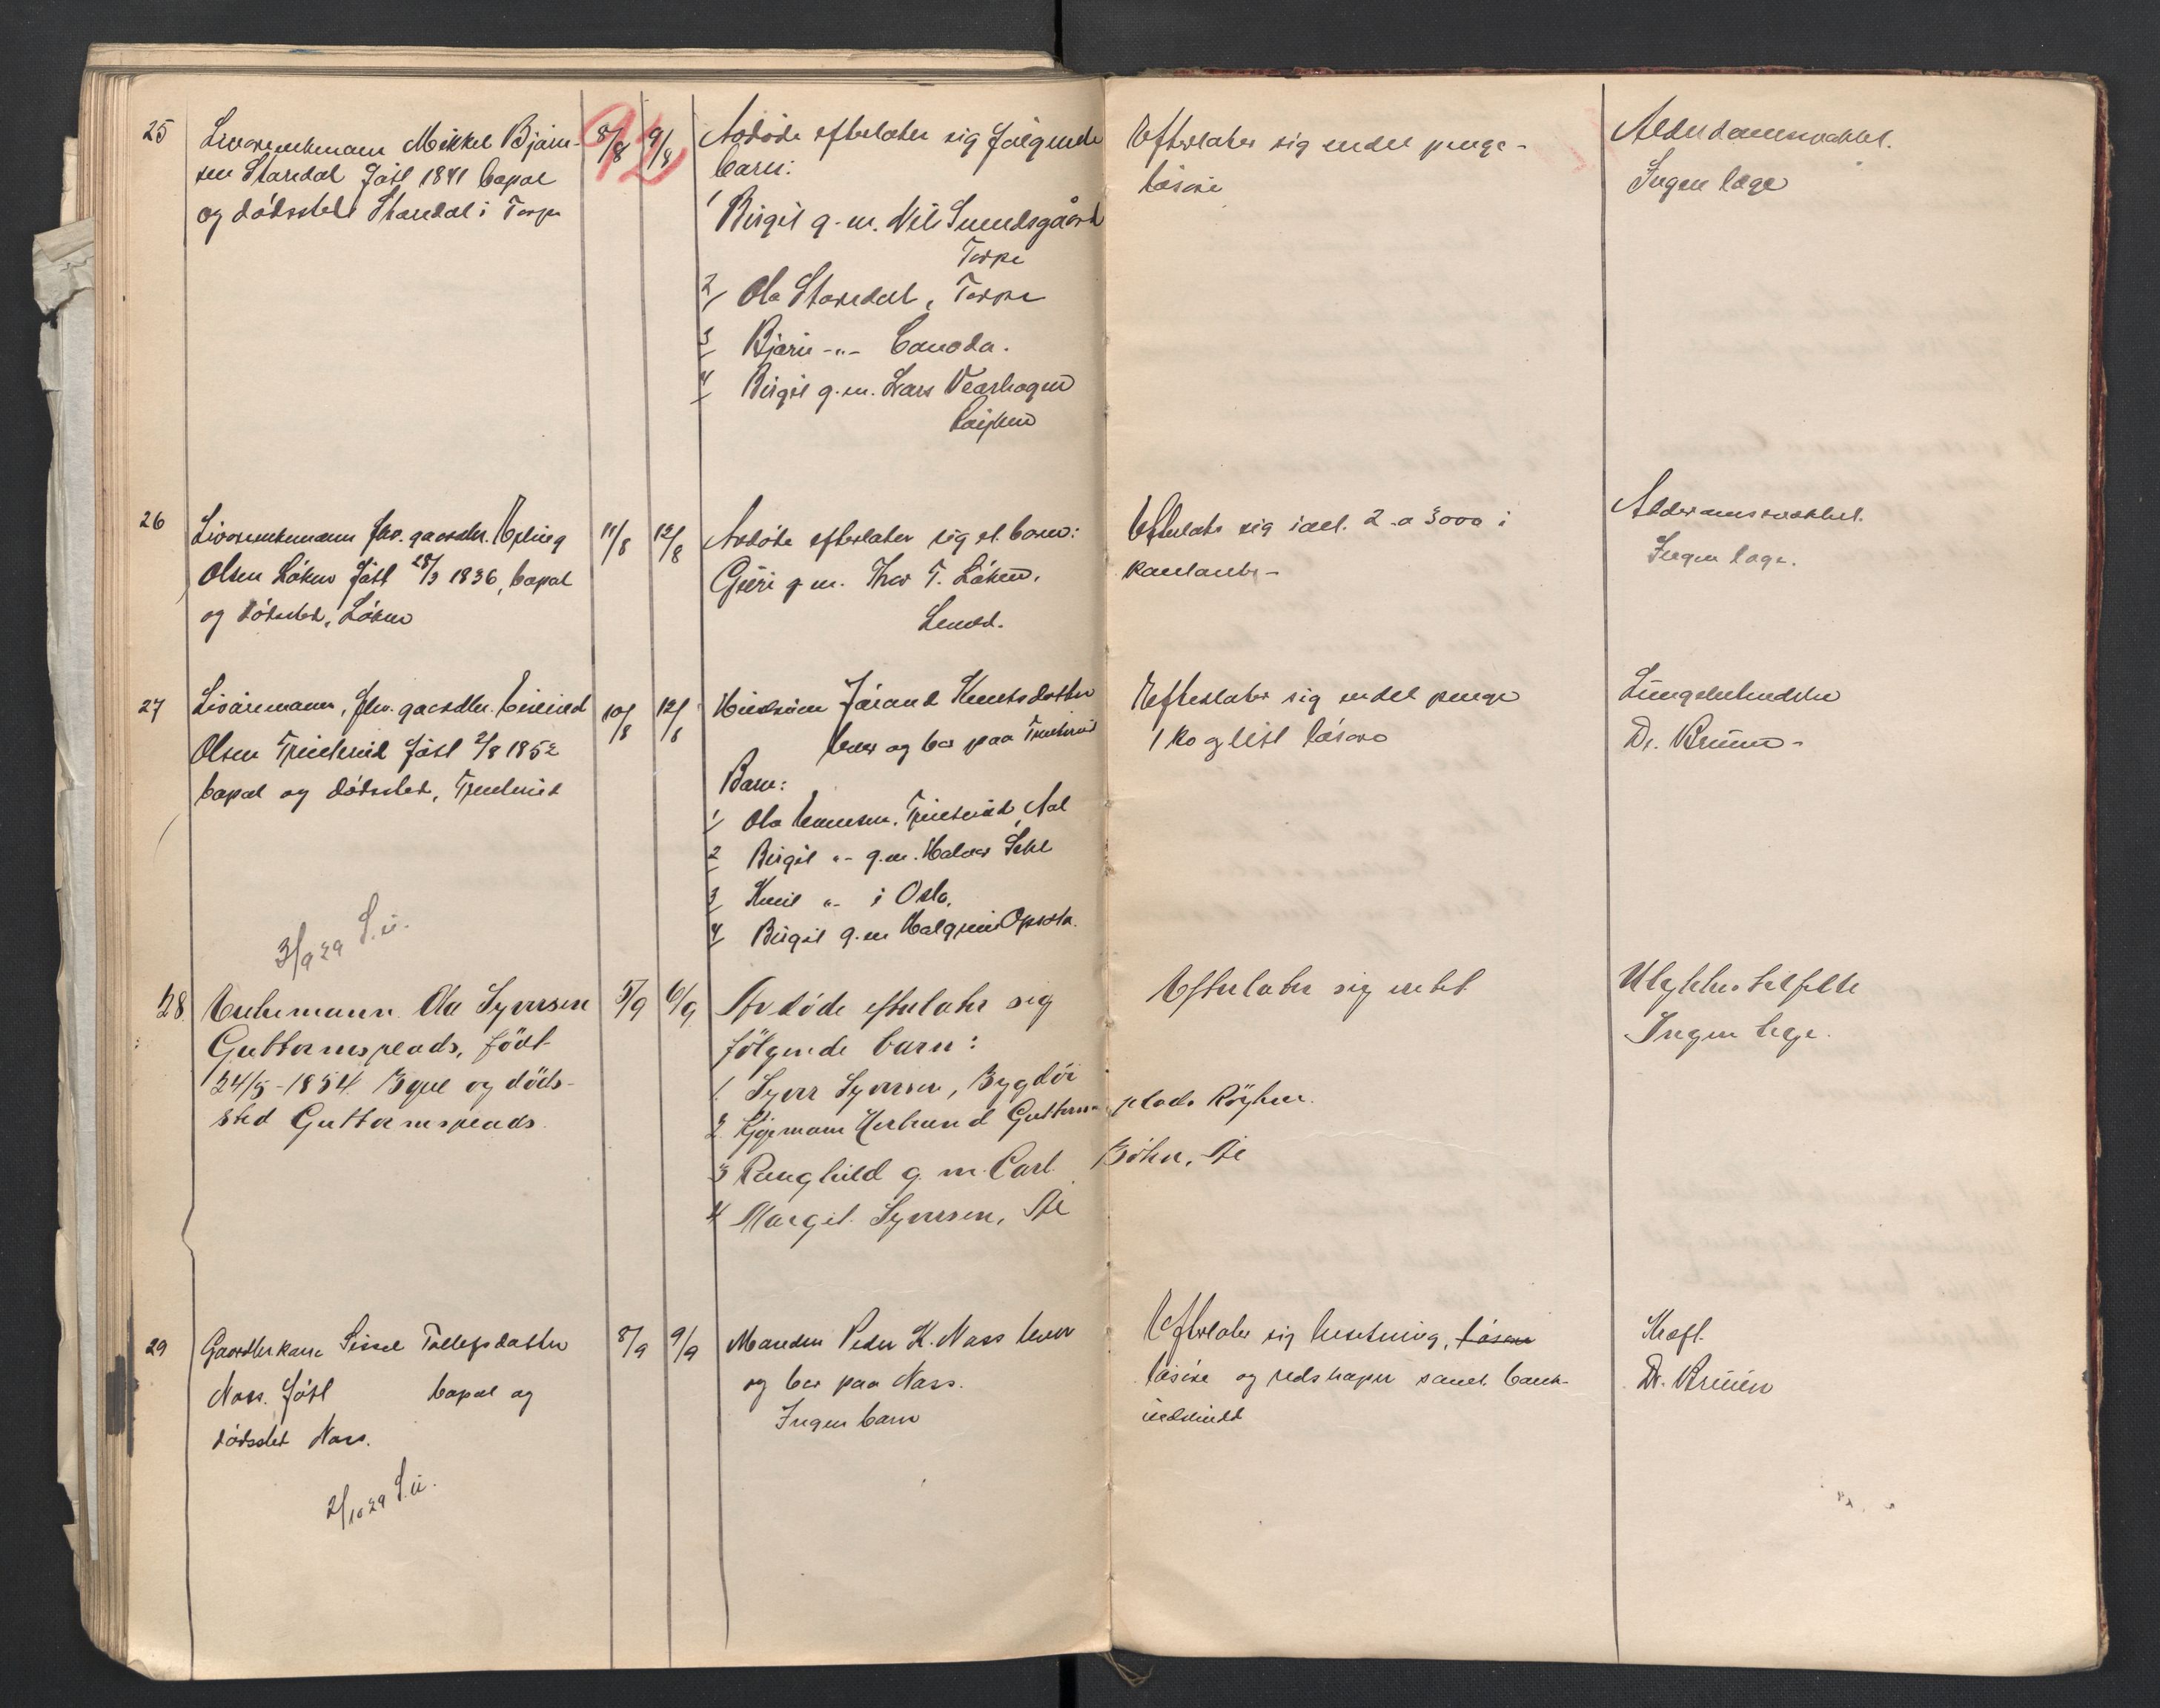 25 Livøreenkemann Mikkel Bjørn- 8/8 9/8 Avdøde efterlater sig følgende Efterlater sig endel penge- Alderdomssvakhet.
sen Stardal født 1841 bopæl barn: løsøre Ingen læge
og dødssted Stardal i Torpe
1 Birgit g. m. Nils Sundsgaard
Torpe
2/ Ola Stardal, Torpe
3/ Bjørn -"- Canada.
4/ Birgit g. m. Lars
Røyken
26 Livøreenkemann fhv. gaardbr. Erling 11/8 12/8 Avdøde efterlater sig et barn: Efterlater sig iael. 2 a 3000 i Alderdomssvakhet.
Olsen Løken født 28/3 1836, bopæl Guri g. m. Thor T. Løken, kontanter - Ingen læge.
og dødssted, Løken Sundr.
27 Livøremann, fhv. gaardbr. Eivind 10/8 12/8 Hustruen Jørand Knutsdatter Efterlater sig endel penge Lungebetendelse
Olsen Trintrud født 2/8 1852 lever og bor paa Trintrud 1 ko og litt løsøre Dr. Bruun -
bopæl og dødssted, Trintrud Barn:
1/ Ola Eivindsen Trintrud, Aal
2 Birgit "- g. m. Halvor
3/ Knut "- i Oslo.
4/ Birgit g. m. Halgrim Opsata.
3/9 29 S.U.
28. Enkemann Ola Syversen 5/9 6/9 Avdøde efterlater sig Efterlater sig intet Ulykkestilfelle
Guttormsplads, født følgende barn: Ingen læge.
24/5 - 1854. Bopæl og døds-
sted Guttormsplads.
1. Syver Syversen, Bygdøi
2. Herbrand Guttormsplads Røyken.
3 Ragnhild g. m. Carl Bøhn, Ål
4 Margit Syversen, Ål
29 Gaardbr.kone Sissel Tollefsdatter 8/9 9/9 Manden Peder K. Næss lever Efterlater sig besetning, løsøre Kræft.
Næss. født bopæl og og bor paa Næss. løsøre og redskaper samt bank- Dr. Bruun
dødssted Næss. Ingen barn indskudd
2/10 29 S.U.